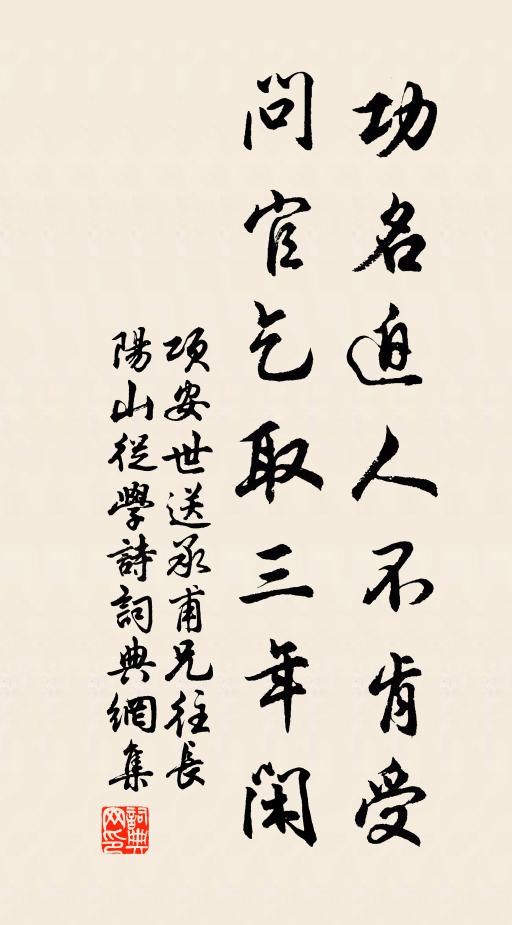 功名迫人不肯受
問官乞取三年閑
項安世送承甫兄往長
陽山從學詩詞典網集
詞典
网印